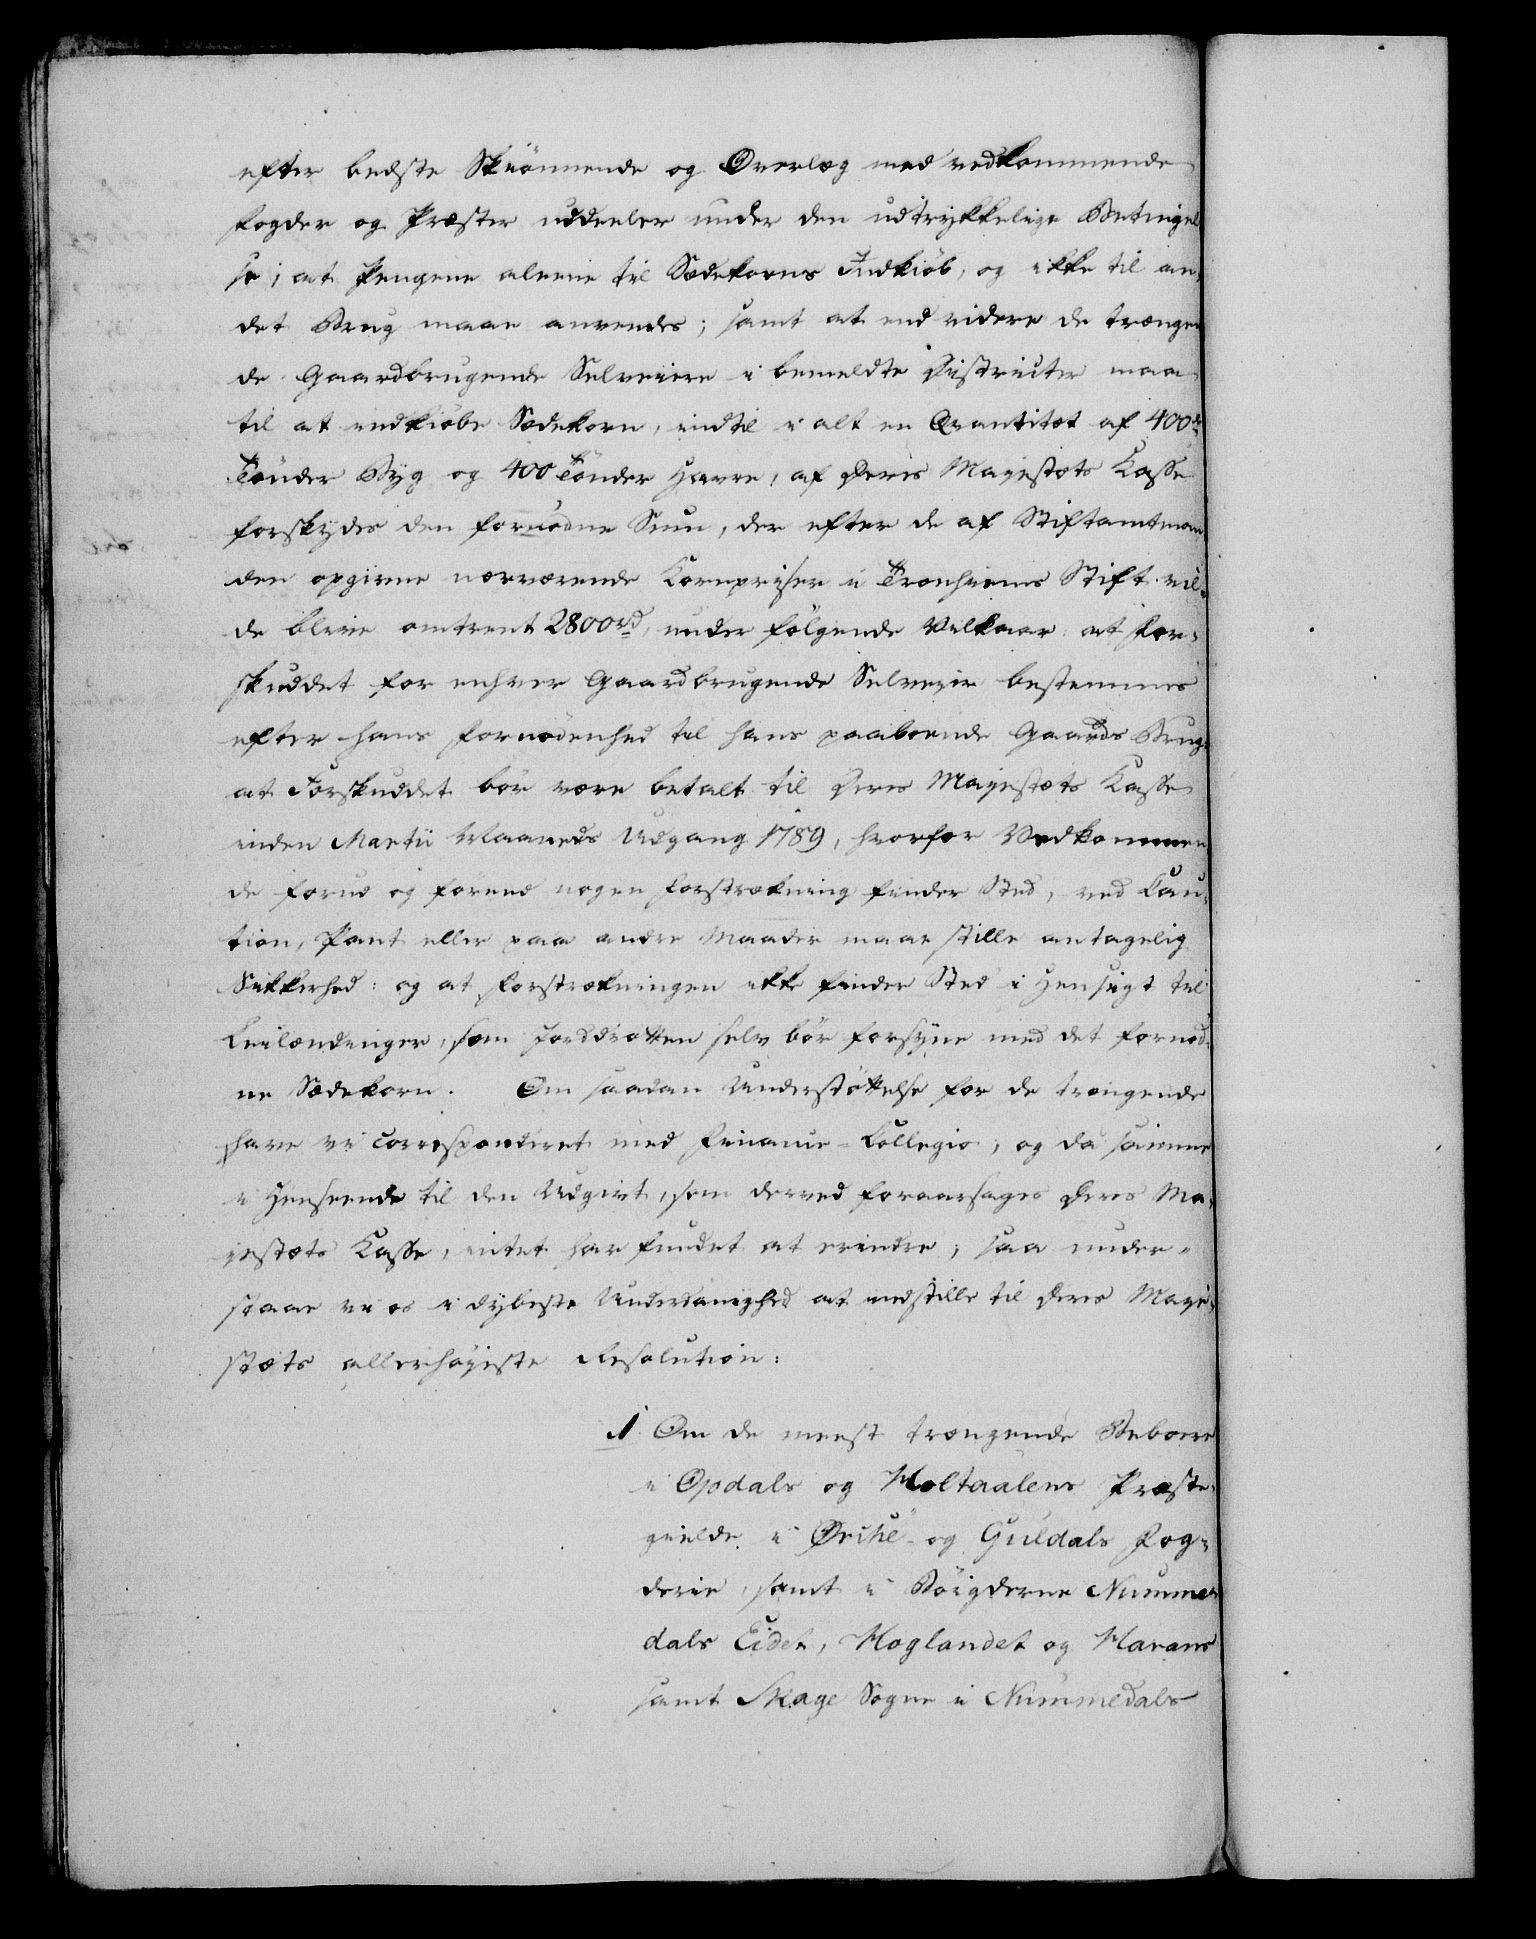 efter bedste Skiönnende og Overlæg med vedkommende
Fogder og Præster uddeeler under den udtrykkelige Betingel
se, at Pengene aleene til Sædekorns Indkiöb, og ikke til an-
det Brug maae anvendes; samt at end videre de trængen
de Gaardbrugende Selveiere i bemeldte Districter maa
til at indkiöbe Sædekorn, indtil i alt en Qvantitæt af 400de
Tönder Byg og 400 Tönder Havre, af Deres Majestæts Kasse
forskydes den fornödne Sum, der efter de af Stiftamtman
den opgivne nærværende Kornpriser i Tronhiems Stift vil-
de blive omtrent 2800rd, under fölgende Velkaar: at For-
skuddet for enhver Gaardbrugende Selveyer bestemmes
efter hans Fornödenhed til hans paaboende Gaards Brug:
at Forskuddet bör være betalt til Deres Majestæts Kasse
inden Martii Maaneds Udgang 1789, hvorfor Vedkommen
de forud og förend nogen Forstrækning finder Sted, ved Cau-
tion, Pant eller paa andre Maader maae stille antagelig
Sikkerhed: og at Forstrækningen ikke finder Sted i Hensigt til
Leilændinger, som Jorddrotten selv bör forsyne med det fornöd-
ne Sædekorn. Om saadan Understöttelse for de trængende
have vi corresponderet med Finance-Collegio, og da samme
i Henseende til den Udgivt, som derved foraarsages Deres Ma-
jestæts Kasse, intet har fundet at erindre, saa under-
staae vi os i dybeste Underdanighed at indstille til Deres Maje-
stæts allerhöjeste Resolution:
1 Om de meest trængende Beboere
i Opdals og Holtaalens Præste-
gielde i Örche- og Guldals Fog-
derie, samt i Böigderne Numme
dals Eidet, Høglandet og Harans
samt Skage Sogne i Nummedals